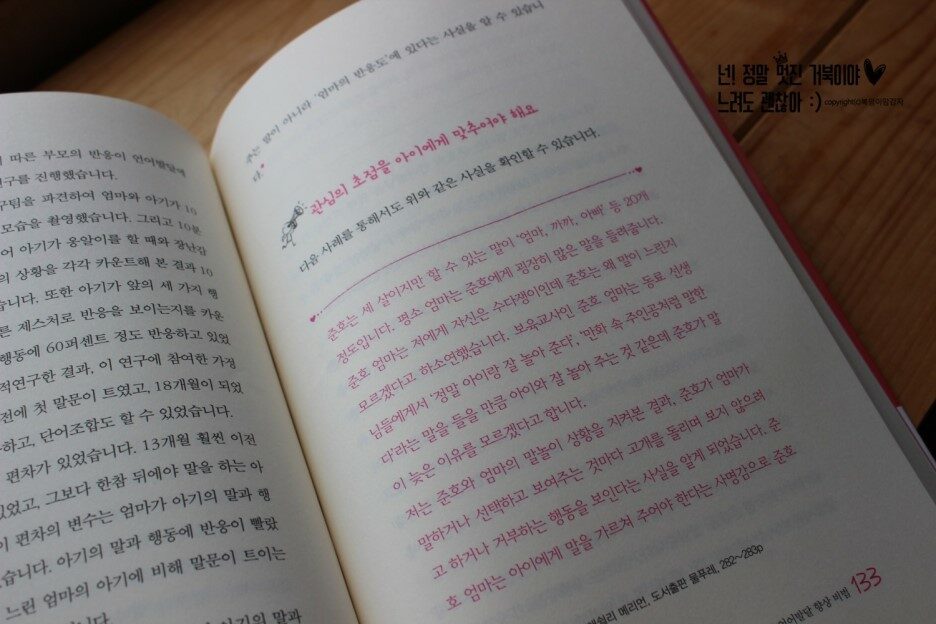 따른 부모의 반응이 언어발달에
구를 진행했습니다.
구팀을 파견하여 엄마와 아기가 10
모습을 촬영했습니다. 그리고 10분
어 아기가 옹알이를 할 때와 장난감
의 상황을 각각 카운트해 본 결과 10
습니다. 또한 아기가 앞의 세 가지 행
른 제스처로 반응을 보이는지를 카운
행동에 60퍼센트 정도 반응하고 있었
적연구한 결과, 이 연구에 참여한 가정
전에 첫 말문이 트였고, 18개월이 되었
하고, 단어조합도 할 수 있었습니다.
편차가 있었습니다. 13개월 훨씬 이전
있었고, 그보다 한참 뒤에야 말을 하는 아
이 편차의 변수는 엄마가 아기의 말과 행
습니다. 아기의 말과 행동에 반응이 빨랐
느린 엄마의 아기에 비해 말문이 트이는
구는 말이 아니라 '엄마의 반응도'에 있다는 사실을 알 수 있습니
다.
관심의 초점을 아이에게 맞추어야 해요
다음 사례를 통해서도 위와 같은 사실을 확인할 수 있습니다.
준호는 세 살이지만 할 수 있는 말이 '엄마, 까까, 아빠' 등 20개
정도입니다. 평소 엄마는 준호에게 굉장히 많은 말을 들려줍니다.
준호 엄마는 저에게 자신은 수다쟁이인데 준호는 왜 말이 느린지
모르겠다고 하소연했습니다. 보육교사인 준호 엄마는 동료 선생
님들에게서 '정말 아이랑 잘 놀아 준다', '만화 속 주인공처럼 말한
다'라는 말을 들을 만큼 아이와 잘 놀아 주는 것 같은데 준호가 말
이 늦은 이유를 모르겠다고 합니다.
저는 준호와 엄마의 말놀이 상황을 지켜본 결과, 준호가 엄마가
말하거나 선택하고 보여주는 것마다 고개를 돌리며 보지 않으려
고 하거나 거부하는 행동을 보인다는 사실을 알게 되었습니다. 준
호 엄마는 아이에게 말을 가르쳐 주어야 한다는 사명감으로 준호
메리먼, 도서출판 물푸레, 282~283p
언어발달 향상 비법 133
네! 정말 멋진 거북이야
느려도 괜찮아 :)